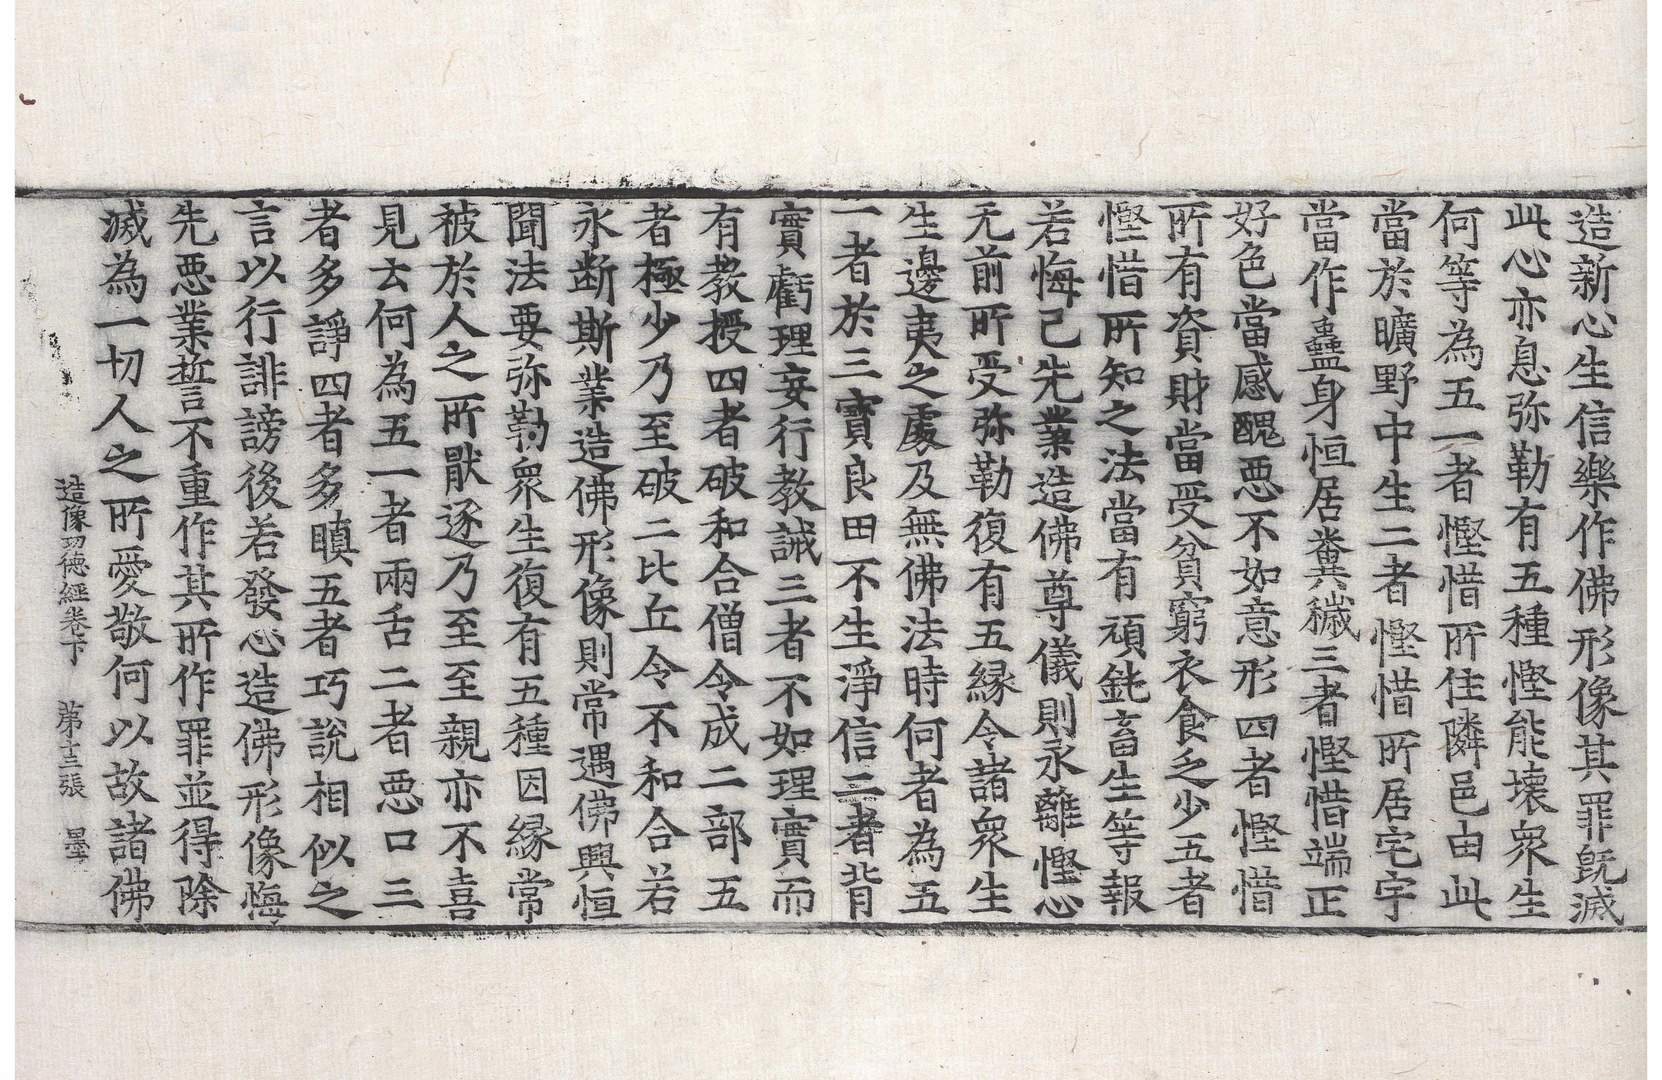 造新心生信樂作佛形像其罪旣滅
此心亦息弥勒有五種慳能壞衆生
何等為五一者慳惜所住隣邑由此
當於曠野中生二者慳惜所居宅宇
當作蟲身恒居糞穢三者慳惜端正
好色當感醜惡不如意形四者慳惜
所有資財當受貧窮衣食乏少五者
慳惜所知之法當有頑鈍畜生等報
若悔己先業造佛尊儀則永離慳心
无前所受弥勒復有五緣令諸衆生
生邊夷之處及無佛法時何者為五
一者於三寶良田不生淨信二者背
實虧理妄行教誡三者不如理實而
有教授四者破和合僧令成二部五
者極少乃至破二比丘令不和合若
永断斯業造佛形像則常遇佛興恒
聞法要弥勒衆生復有五種因緣常
被於人之所猒逐乃至至親亦不喜
見云何為五一者兩舌二者惡口三
者多諍四者多瞋五者巧說相似之
言以行誹謗後若發心造佛形像悔
先惡業誓不重作其所作罪並得除
滅為一切人之所愛敬何以故諸佛
造像功徳經卷下 第十三張 墨